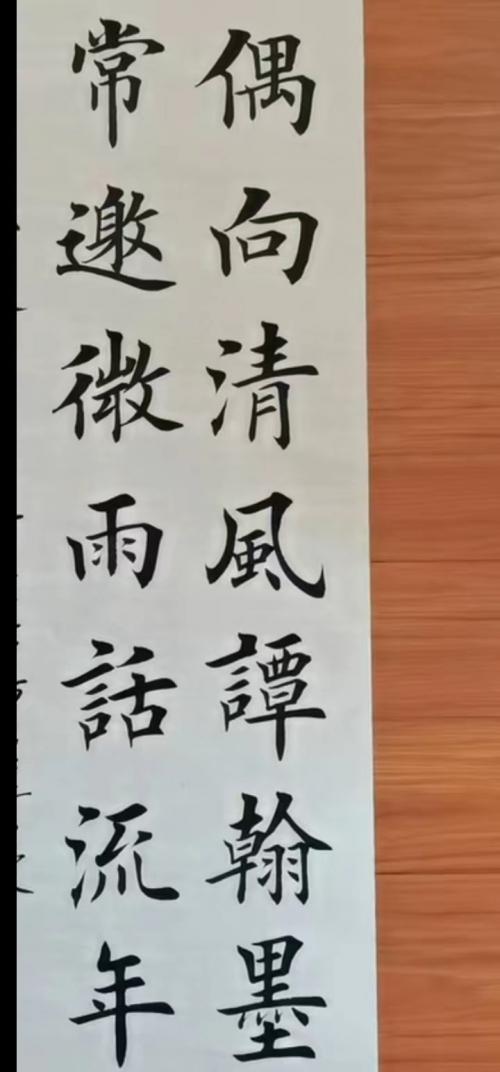 偶向清風譚翰墨
常邀微雨話流年